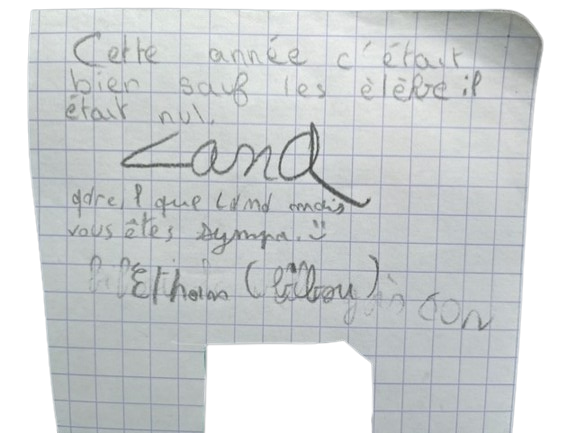 Cette année c'était
bien sauf les élève il
était nul.
Land
que Land mais
vous êtes sympa. :)
Ethan (bilbou)